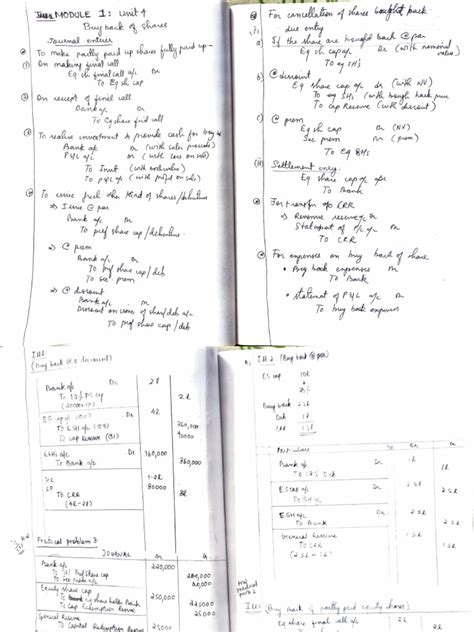 MODULE 1: Unit 4
Buy back of shares
Journal entries
To make partly paid up share fully paid up -
① On making final call
Eq sh final call a/c Dr
To Eq sh cap
② On receipt of final call
Bank a/c Dr
To Eq share final call
③ To realise investment to provide cash for buy
Bank a/c Dr (with sales proceeds)
P4L a/c Dr (with loss on sale)
To Invt (with
To P4L a/c (with profit on sale)
To issue fresh kind of shares/debentures
⇒ Issue @ par
Bank a/c Dr
To pref share cap/debentures
⇒ @ prem
Bank a/c Dr
To pref share cap/deb
To sec prem
⇒ @ discount
Bank a/c Dr
Discount on issue of share/deb a/c Dr
To pref share cap/deb
For cancellation of shares bought back
due entry
a) If the share are bought back @ par
Eq sh cap a/c Dr (with nominal value)
To eq SH's
b) @ discount
Eq share cap a/c dr (with NV)
To eq SH's (with bought back price
To cap Reserve (with discount)
c) @ prem
Eq sh cap Dr (NV)
Sec prem Dr ( )
To Eq SH's
(iii) Settlement entry:
Eq share cap a/c Dr
To Bank
For transfer of CRR
⇒ Revenue reserve a/c Dr
Statement of P/L a/c Dr
To CRR
For expenses on buy back of share
• Buy back expenses Dr
To Bank
• Statement of P4L a/c Dr
To buy back expenses
Ill 1:
(Buy back @ a discount)
Bank a/c Dr
To 12% PS cap
2l
Dr 4l
To ESH a/c
360,000
To cap Reserve
40000
ESH's a/c Dr 360,000
To Bank a/c 360,000
80000
To CRR 2l
(4l-2l)
Practical problem 3
JOURNAL
Bank a/c Dr 220,000
To Pref share cap 200,000
To Sec prem a/c 20,000
Equity share cap
To Equity share holders Bank
To Cap Redemption Reserve
General Reserve
To Capital Redemption Reserve
Ill 2 (Buy back @ par)
ES cap 10l
25%
Buy back 2.5l
Deb 1l
CRR 1.5l
Particulars Dr Cr
Bank a/c Dr 1l
To 12% Deb 1l
ES cap a/c Dr 2.5l
To S.H. 2.5l
ESH a/c Dr 2.5l
To Bank 2.5l
General Reserve 1.5l
To CRR 1.5l
(2.5l - 1l)
Ill 3 (Buy back of partly paid equity shares)